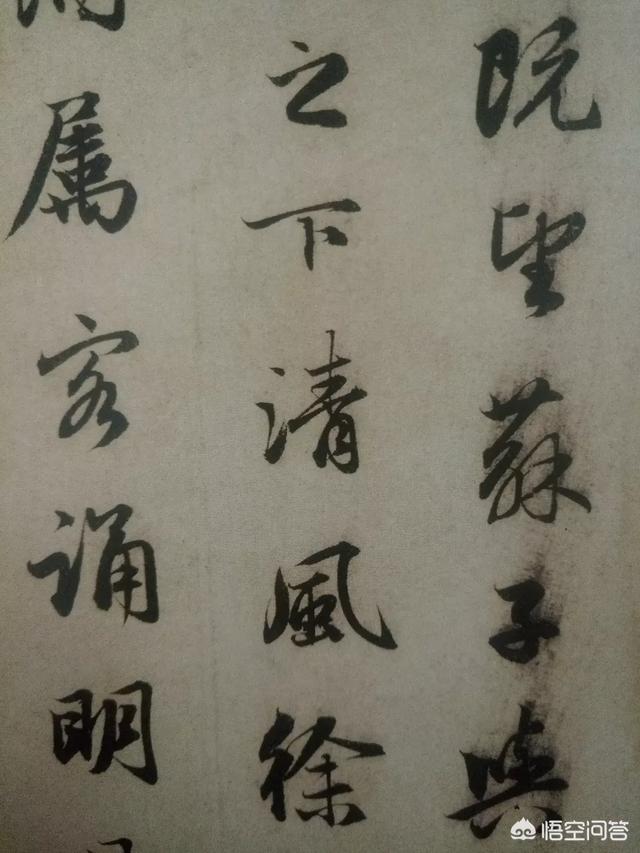 既望蘇子與
之下清風徐
属客诵明
悟空问答